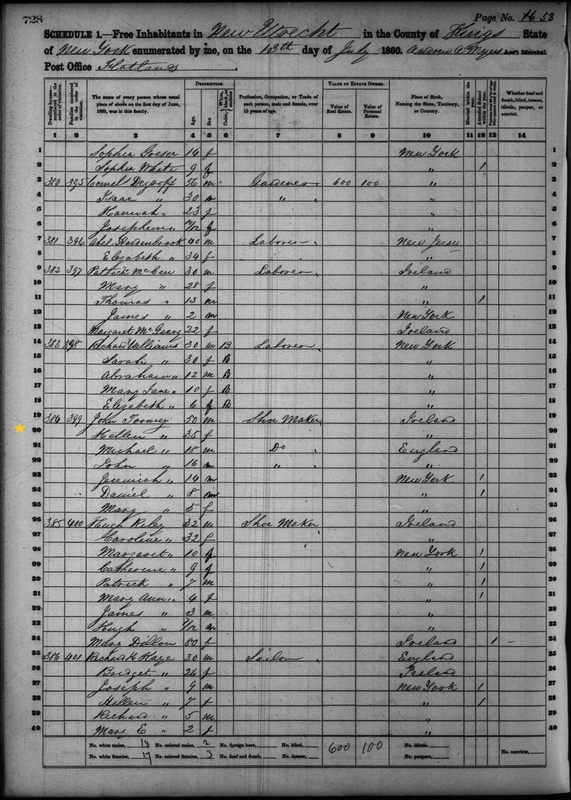 728
Page No. 16 53
SCHEDULE 1.—Free Inhabitants in New Utrecht in the County of Kings State
of New York enumerated by me, on the 13th day of July 1860. Ass't Marshal
Post Office Flatlands
Dwelling-houses numbered in the order of visitation.
Families numbered in the order of visitation.
The name of every person whose usual place of abode on the first day of June, 1860, was in this family.
DESCRIPTION.
Age.
Sex.
Profession, Occupation, or Trade of each person, male and female, over 15 years of age.
VALUE OF ESTATE OWNED.
Value of Real Estate.
Value of Personal Estate.
Place of Birth, Naming the State, Territory, or Country.
Married within the year.
Attended School within the year.
Whether deaf and dumb, blind, insane, idiotic, pauper, or convict.
1 2 3 4 5 6 7 8 9 10 11 12 13 14
1 Sophia 14 f New York 1
2 Sophia White 9 f " 1 2
3 380 395 Cornel 56 m Gardener 600 100 " 3
4 Isaac " 30 m " " 4
5 Hannah " 23 f " 5
6 Josephine " f " 6
7 381 396 Abel Hardenbrook 40 m Laborer New Jersey 7
8 Elizabeth " 34 f " 8
9 382 397 Patrick 30 m Laborer Ireland 9
10 Mary " 28 f " 10
11 Thomas " 13 m " 1 11
12 James " 2 m New York 12
13 Margaret 22 f Ireland 13
14 383 398 Richard Williams 30 m B Laborer New York 14
15 Sarah " 30 f B " 15
16 Abraham " 12 m B " 16
17 Mary Jane " 10 f B " 17
18 Elizabeth " 6 f B " 18
19 384 399 John Toomey 50 m Shoe Maker Ireland 19
20 Hellen " 35 f " 20
21 Michael " 18 m Do England 21
22 John " 16 m " " 22
23 Jeremiah " 14 m New York 1 23
24 Daniel " 8 m " 1 24
25 Mary " 5 f " 25
26 385 400 Hugh Riley 32 m Shoe Maker Ireland 26
27 Caroline " 32 f " 27
28 Margaret " 10 f New York 1 28
29 Catherine " 9 f " 1 29
30 Patrick " 7 m " 1 30
31 Mary Ann " 4 f " 1 31
32 James " 3 m " 32
33 Hugh " m " 33
34 Mary Dillon 80 f Ireland 1 34
35 386 401 Richard Kaye 30 m Sailor England 35
36 Bridget " 26 f Ireland 36
37 Joseph " 9 m New York 1 37
38 Hellen " 7 f " 1 38
39 Richard " 5 m " 39
40 Mary E " 2 f " 40
No. white males, 18 No. colored males, 2 No. foreign born, No. blind, 600 100 No. idiotic, No. convicts,
No. white females, 17 No. colored females, 3 No. deaf and dumb, No. insane, No. paupers,